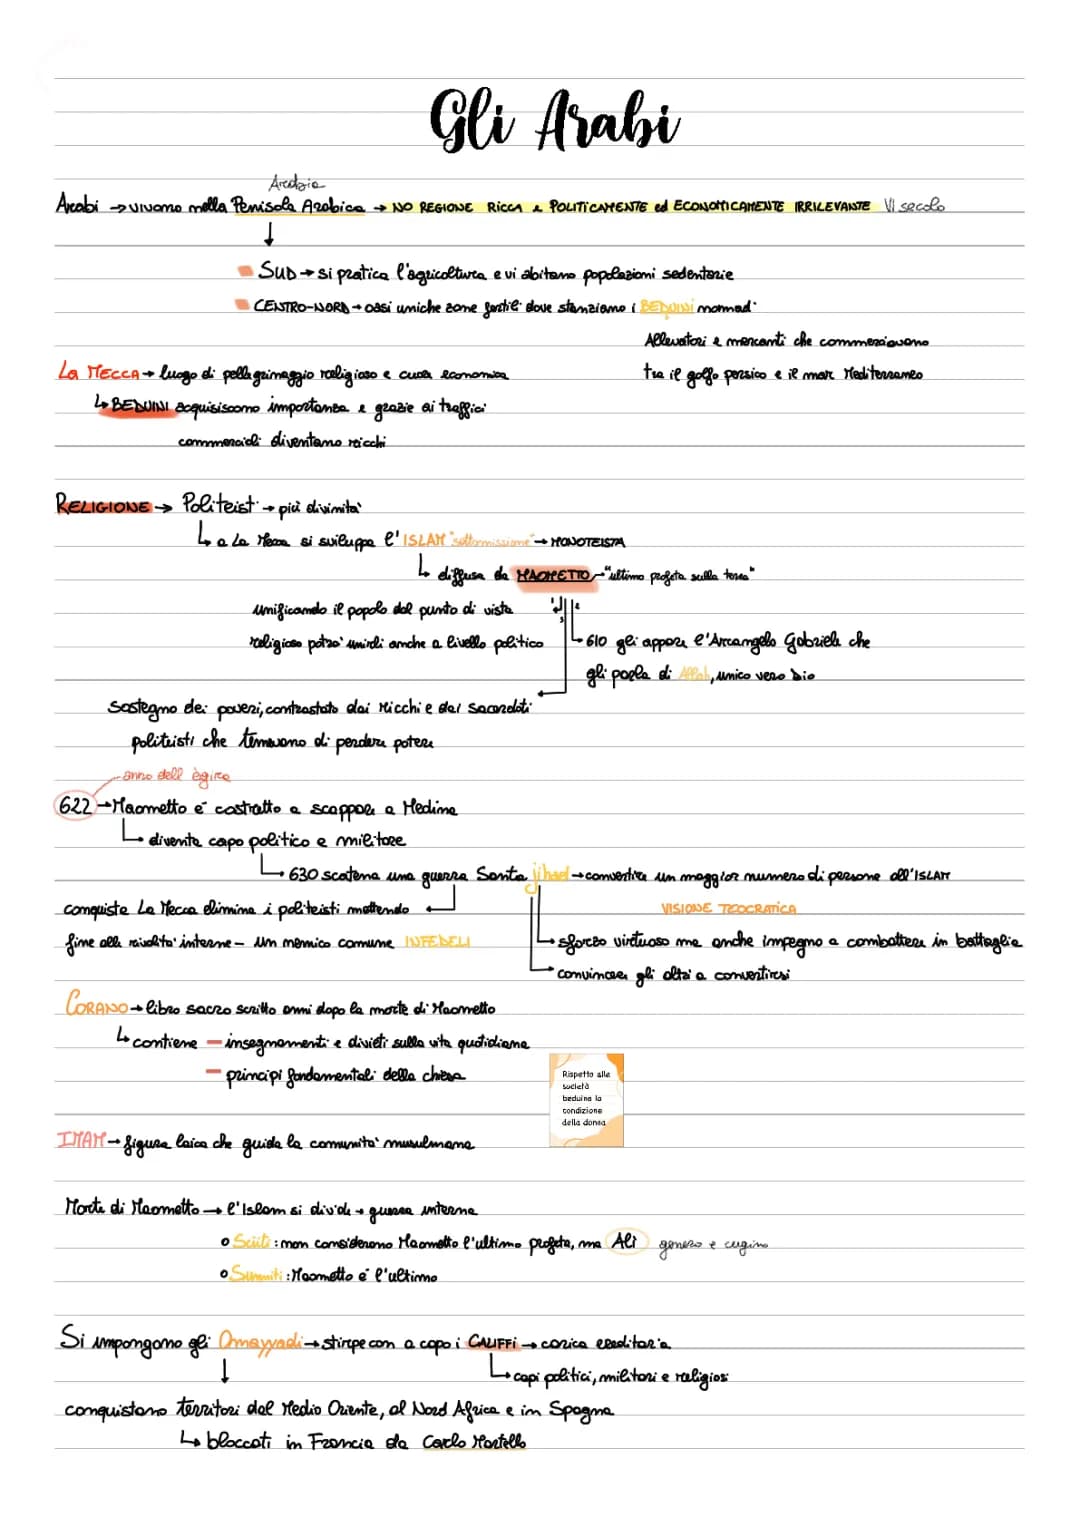 Gli Arabi
Arabia
Arabi → vivono nella Penisola Arabica → NO REGIONE RICCA e POLITICAMENTE ed ECONOMICAMENTE IRRILEVANTE VI secolo
↓
SUD → si pratica l'agricoltura e vi abitano popolazioni sedentarie
CENTRO-NORD → oasi uniche zone fertili dove stanziano i BEDUINI nomadi
Allevatori e mercanti che commerciavano
tra il golfo persico e il mar Mediterraneo
La MECCA → luogo di pellegrinaggio religioso e cuore economico
↳ BEDUINI acquisiscono importanza e grazie ai traffici
commerciali diventano ricchi
RELIGIONE → Politeisti → più divinità
↳ a La Mecca si sviluppa l'ISLAM "sottomissione" → MONOTEISTA
↳ diffusa da MAOMETTO → "ultimo profeta sulla terra"
unificando il popolo dal punto di vista
religioso potrà unirli anche a livello politico
610 gli appare l'Arcangelo Gabriele che
gli parla di Allah, unico vero Dio
Sostegno dei poveri, contrastato dai ricchi e dai sacerdoti
politeisti che temevano di perdere potere
anno dell' ègira
622 → Maometto è costretto a scappare a Medina
↳ diventa capo politico e militare
↳ 630 scatena una guerra Santa jihad → convertire un maggior numero di persone all'ISLAM
conquista La Mecca elimina i politeisti mettendo
VISIONE TEOCRATICA
fine alle rivalità interne – un nemico comune INFEDELI
→ sforzo virtuoso ma anche impegno a combattere in battaglia
→ convincere gli altri a convertirsi
CORANO → libro sacro scritto anni dopo la morte di Maometto
↳ contiene – insegnamenti e divieti sulla vita quotidiana
– principi fondamentali della chiesa
Rispetto alle
società
beduina la
condizione
della donna
IMAM → figura laica che guida la comunità musulmana
Morte di Maometto → l'Islam si divide → guerra interna
Sciiti: non considerano Maometto l'ultimo profeta, ma Alì genero e cugino
Sunniti: Maometto è l'ultimo
Si impongono gli Omayyadi → stirpe con a capo i CALIFFI → carica ereditaria
↓
↳ capi politici, militari e religiosi
conquistano territori dal Medio Oriente, al Nord Africa e in Spagna
↳ bloccati in Francia da Carlo Martello